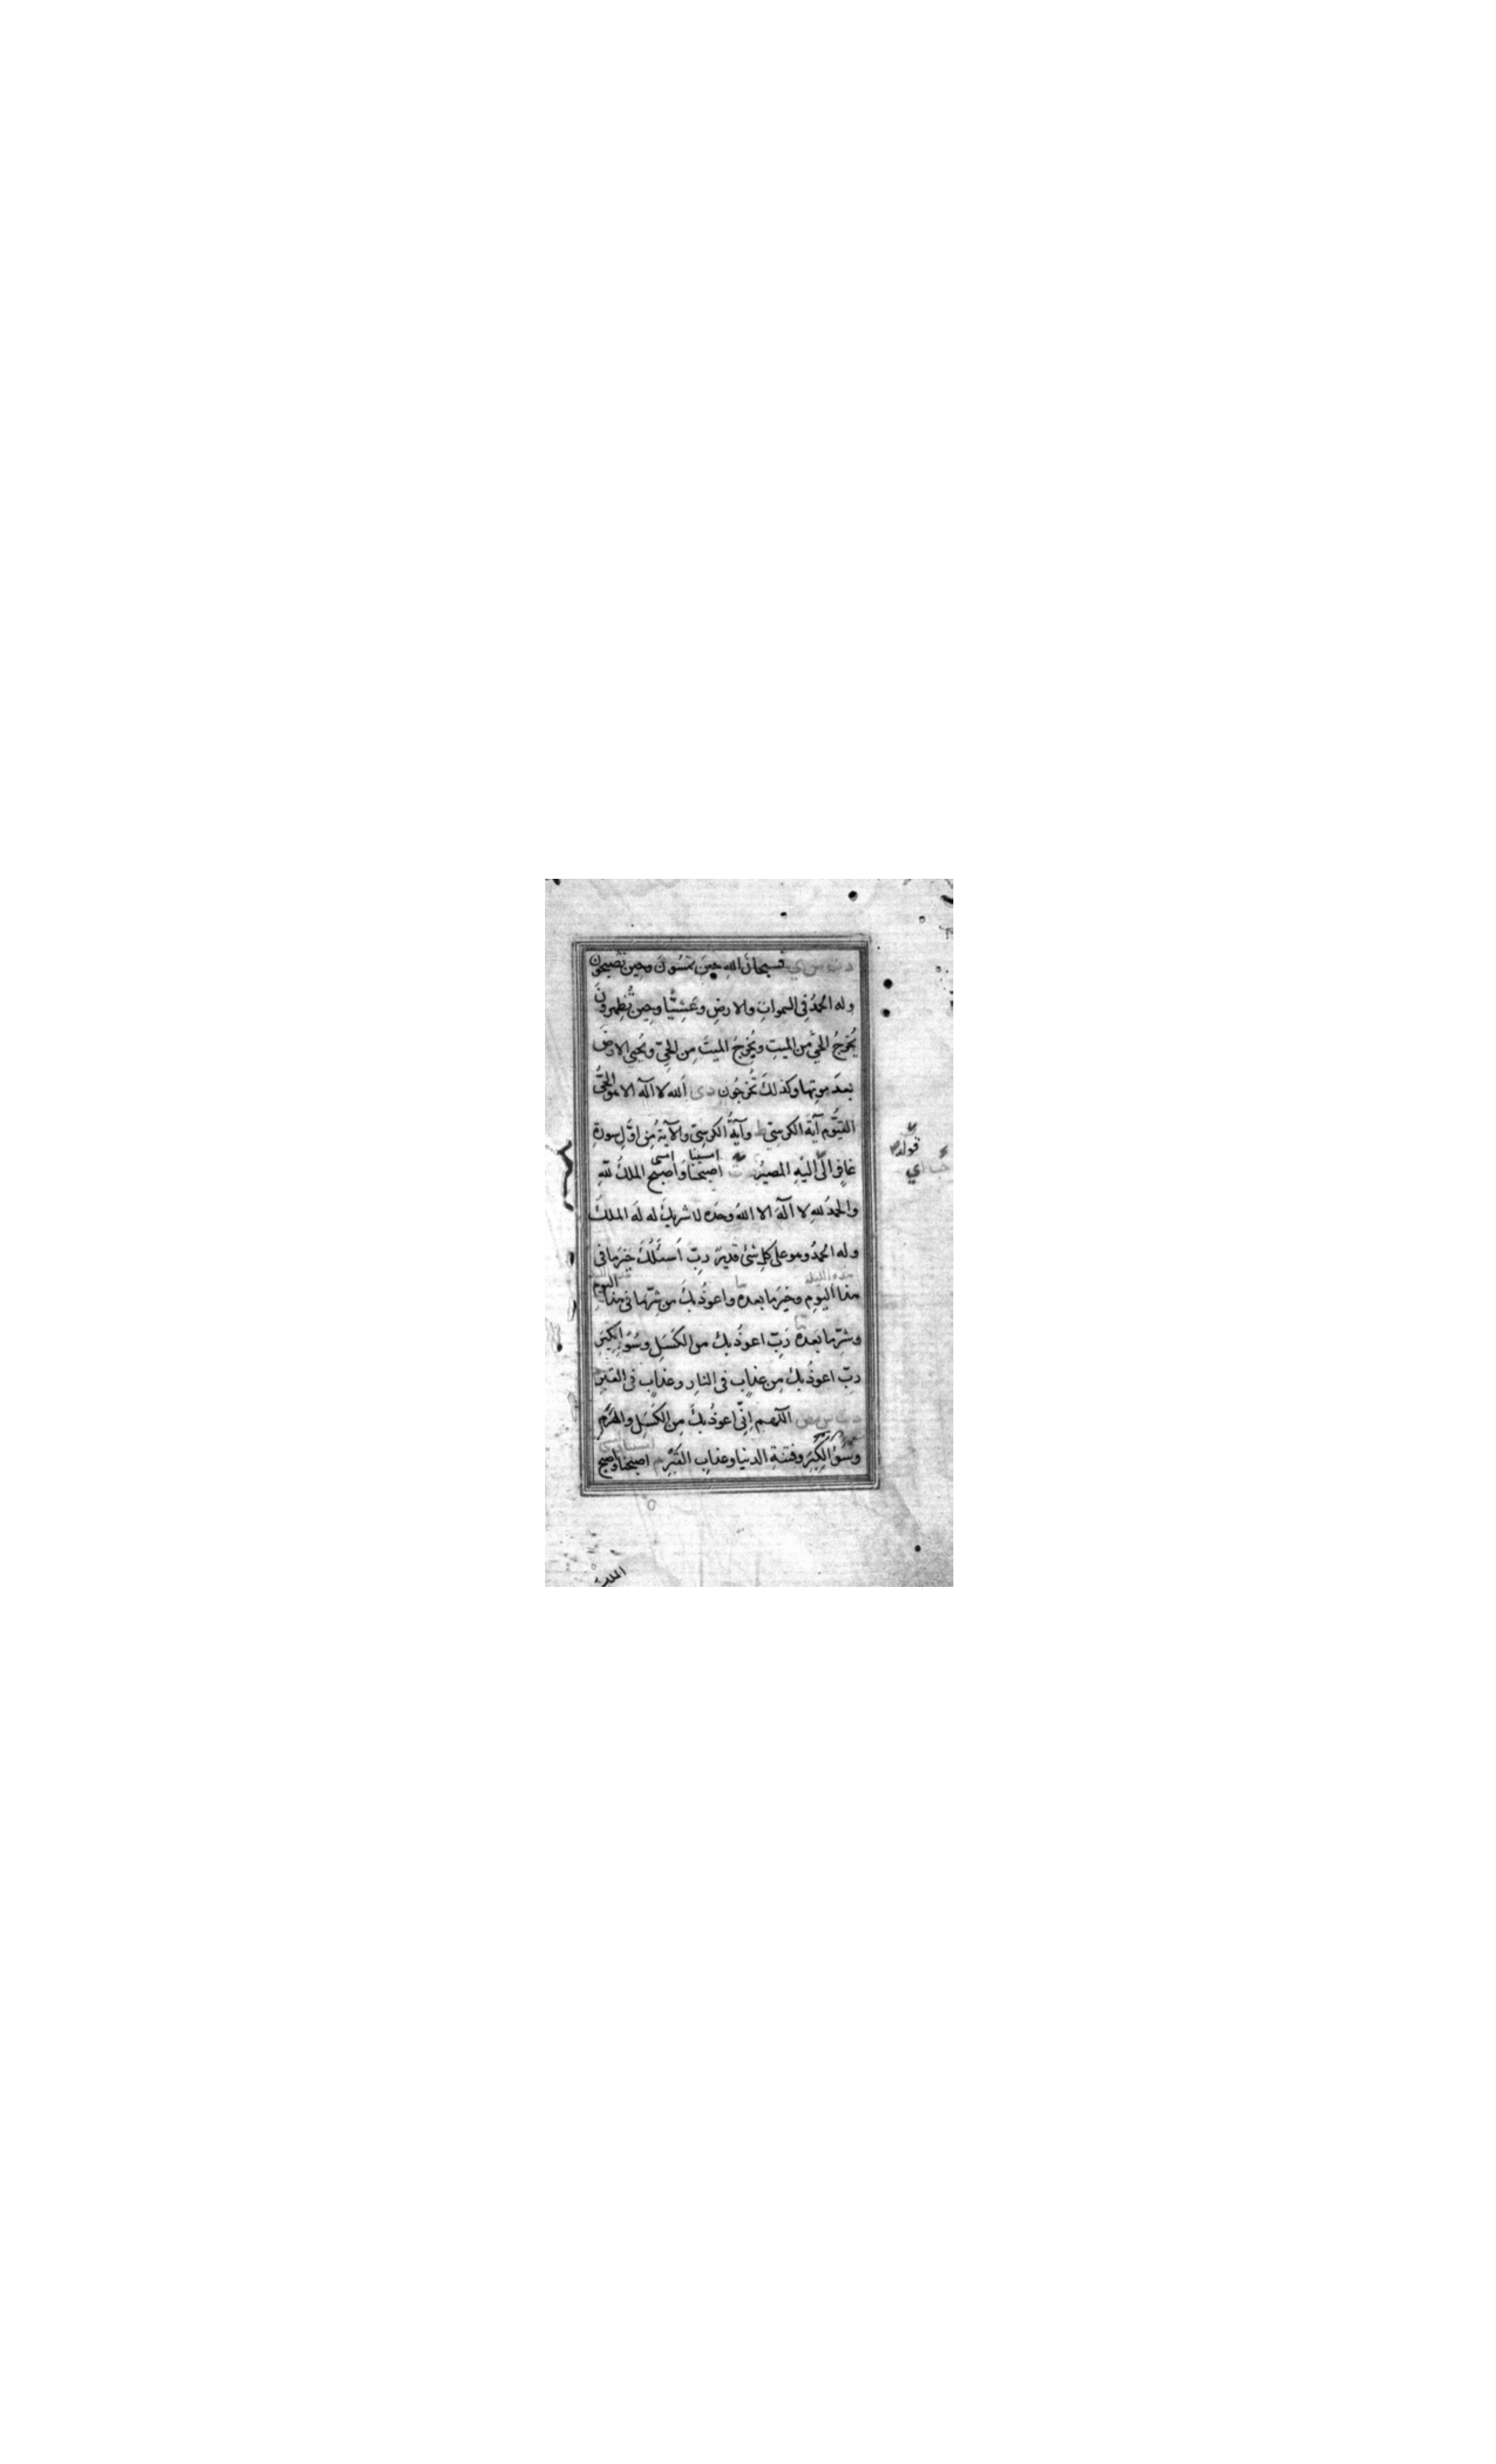 فسبحانَ اللهِ حينَ تمسُونَ وحين تصبحون
وله الحمدُ فى السموات والارضِ وعَشِيًّا وحِين تُظهرونَ
يُخرِجُ الحىَّ من الميتِ ويُخرِجُ الميتَ مِن الحىِّ ويُحيى الارضَ
بعدَ موتِها وكذلكَ تُخرجُون دى اَلله لا اله الا هو الحىُّ
القيُّوم آية الكرسىّ ط وآيةُ الكرسىّ والآيةُ مِن اوّلِ سورةِ
امسينا امسى
غافر الى اليْهِ المصيرُ اصبحنا وَاصبح الملكُ للّٰهِ
والحمدُ للهِ لا الٰهَ الا اللهُ وحدَه لا شريكَ له لَه الملكُ
وله الحمدُ وهو على كلِ شئ قديرٌ ربِّ اَسئَلُكَ خيرَ ما فى
هذه الليلة ها
هذا اليَومِ وخيرَ ما بعده واعوذُ بكَ من شرِّ ما فى هذا اليوم
ها
وشرِّ ما بعدهُ رَبِّ اعوذُ بك من الكَسَلِ وسُوءِ الكِبَرِ
ربِّ اعوذُ بكَ مِن عذابٍ فى النار وعذابٍ فى القبرِ
اللّٰهم اِنِّى اعوذُ بكَ مِن الكَسَلِ والهَرَمِ
امسينا امسى
وسُوءِ الكِبَرِ وفتنةِ الدنيا وعذابِ القبْرِ م اصبحنا واصبح
قوله
اي
الملك